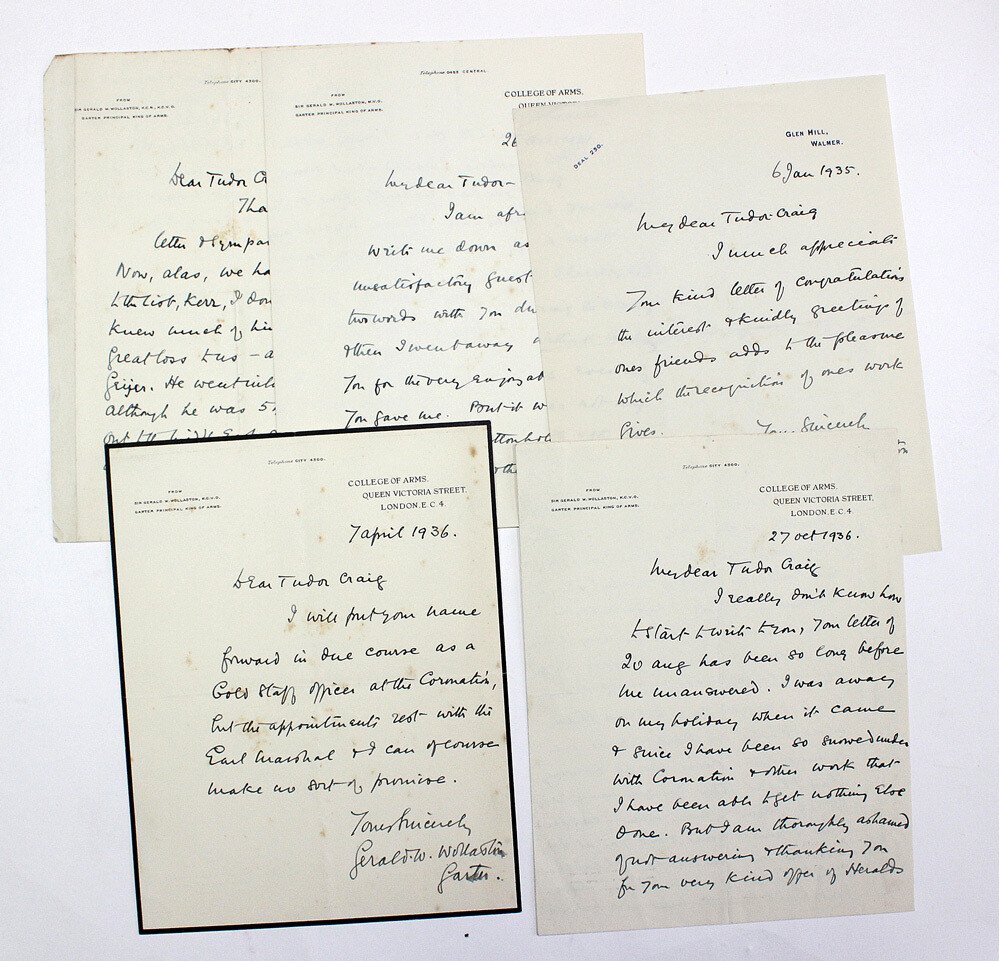 Telephone CITY 4300.
FROM
SIR GERALD W. WOLLASTON, K.C.B., K.C.V.O.
GARTER PRINCIPAL KING OF ARMS.
Dear Tudor C
Tha
letter & sympa
Now, alas, we ha
Kerr, I don
knew much of hi
great loss to us – a
Geijer. He went
although he was 5
Telephone 0485 CENTRAL
FROM
SIR GERALD W. WOLLASTON, M.V.O.
GARTER PRINCIPAL KING OF ARMS.
COLLEGE OF ARMS,
QUEEN VICTORI
26
My dear Tudor-
I am afr
write me down as
unsatisfactory guest
two words with you du
& then I went away
you for the very enjoyab
you gave me. But it w
DEAL 230.
GLEN HILL,
WALMER.
6 Jan 1935.
My dear Tudor-Craig
I much appreciate
your kind letter of congratulations
the interest & kindly greetings of
ones friends adds to the pleasure
which the recognition of ones work
gives.
Yours Sincerely
Telephone CITY 4300.
FROM
SIR GERALD W. WOLLASTON, K.C.V.O.
GARTER PRINCIPAL KING OF ARMS.
COLLEGE OF ARMS,
QUEEN VICTORIA STREET,
LONDON, E.C.4.
7 April 1936.
Dear Tudor Craig
I will put your name
forward in due course as a
Gold Staff Officer at the Coronation,
but the appointments rest with the
Earl Marshal & I can of course
make no sort of promise.
Yours Sincerely
Gerald W. Wollaston
Garter.
Telephone CITY 4300.
FROM
SIR GERALD W. WOLLASTON, K.C.V.O.
GARTER PRINCIPAL KING OF ARMS.
COLLEGE OF ARMS,
QUEEN VICTORIA STREET,
LONDON, E.C.4.
27 Oct 1936.
My dear Tudor Craig
I really don't know how
to start to write to you, your letter of
20 Aug has been so long before
me unanswered. I was away
on my holiday when it came
& since I have been so snowed under
with Coronation & other work that
I have been able to get nothing else
done. But I am thoroughly ashamed
of not answering & thanking you
for your very kind offer of Heralds